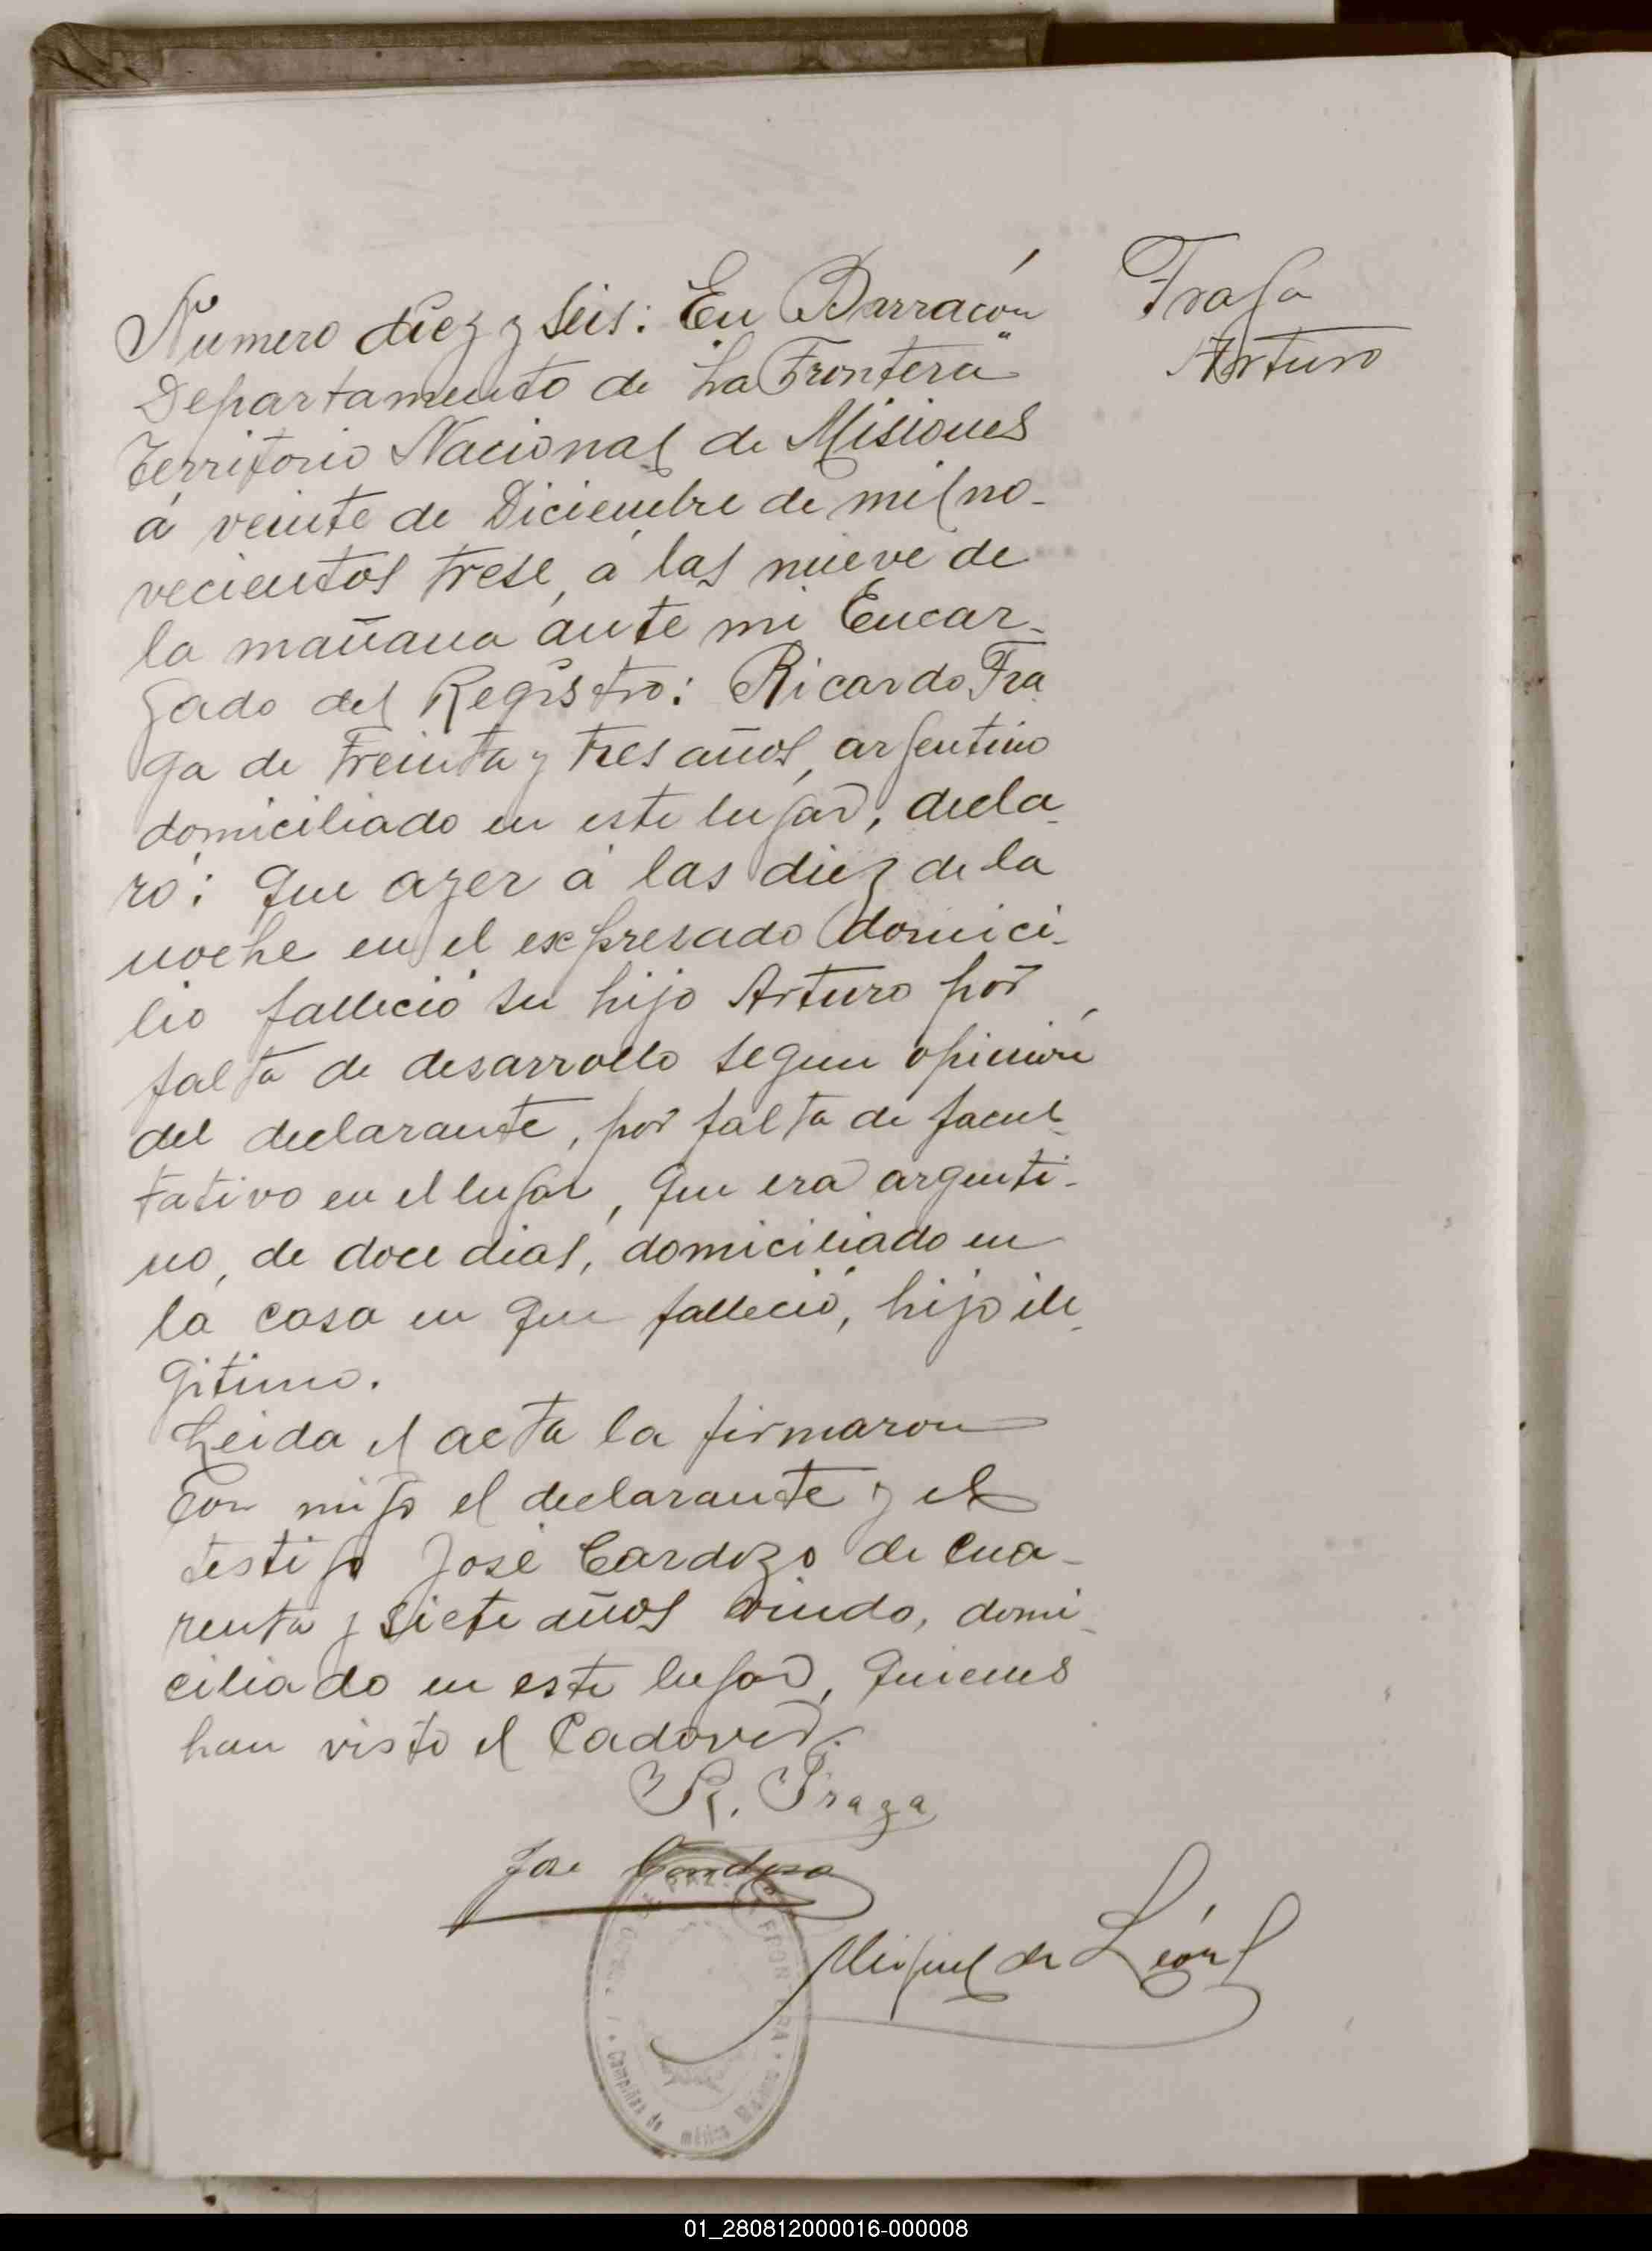 Numero diez y seis: En Barracón
Departamento de "La Frontera"
Territorio Nacional de Misiones
á veinte de Diciembre de mil no-
vecientos trese, á las nueve de
la mañana ante mi Encar-
gado del Registro: Ricardo Fra
ga de treinta y tres años, argentino
domiciliado en este lugar, decla-
ró: Que ayer á las diez de la
noche en el expresado domici-
lio falleció su hijo Arturo por
falta de desarrollo segun opinión
del declarante, por falta de facul-
tativo en el lugar, que era argenti-
no, de doce dias, domiciliado en
la casa en que falleció, hijo ile-
gitimo.
Leida el acta la firmaron
con migo el declarante y el
testigo José Cardozo de cua-
renta y siete años viudo, domi-
ciliado en este lugar, quienes
han visto el Cadaver.
Fraga
Arturo
R. Fraga
Jose Cardozo
Miguel de León
PAZ FRONTERA
Campiñas de
01_280812000016-000008